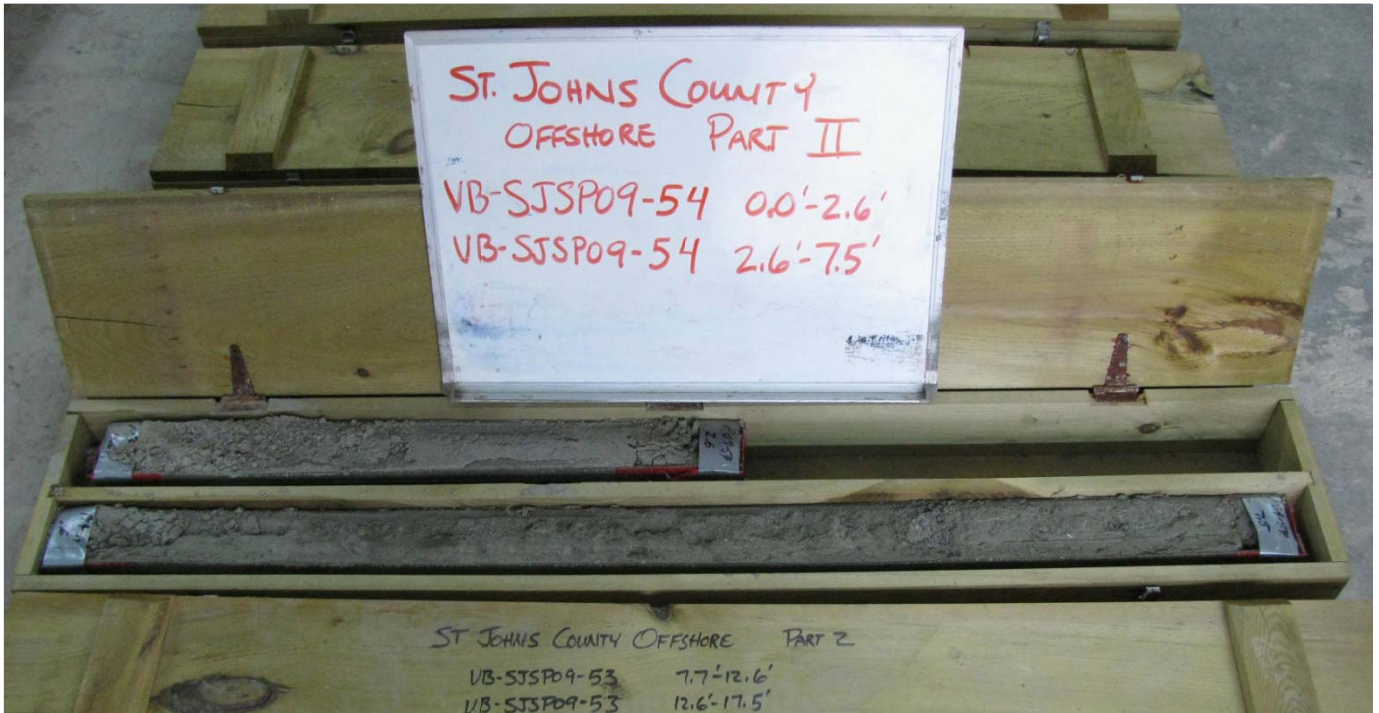 ST. JOHNS COUNTY
OFFSHORE PART II
VB-SJSP09-54 0.0'-2.6'
VB-SJSP09-54 2.6'-7.5'
2.6
ST JOHNS COUNTY OFFSHORE PART 2
VB-SJSP09-53 7.7'-12.6'
VB-SJSP09-53 12.6'-17.5'